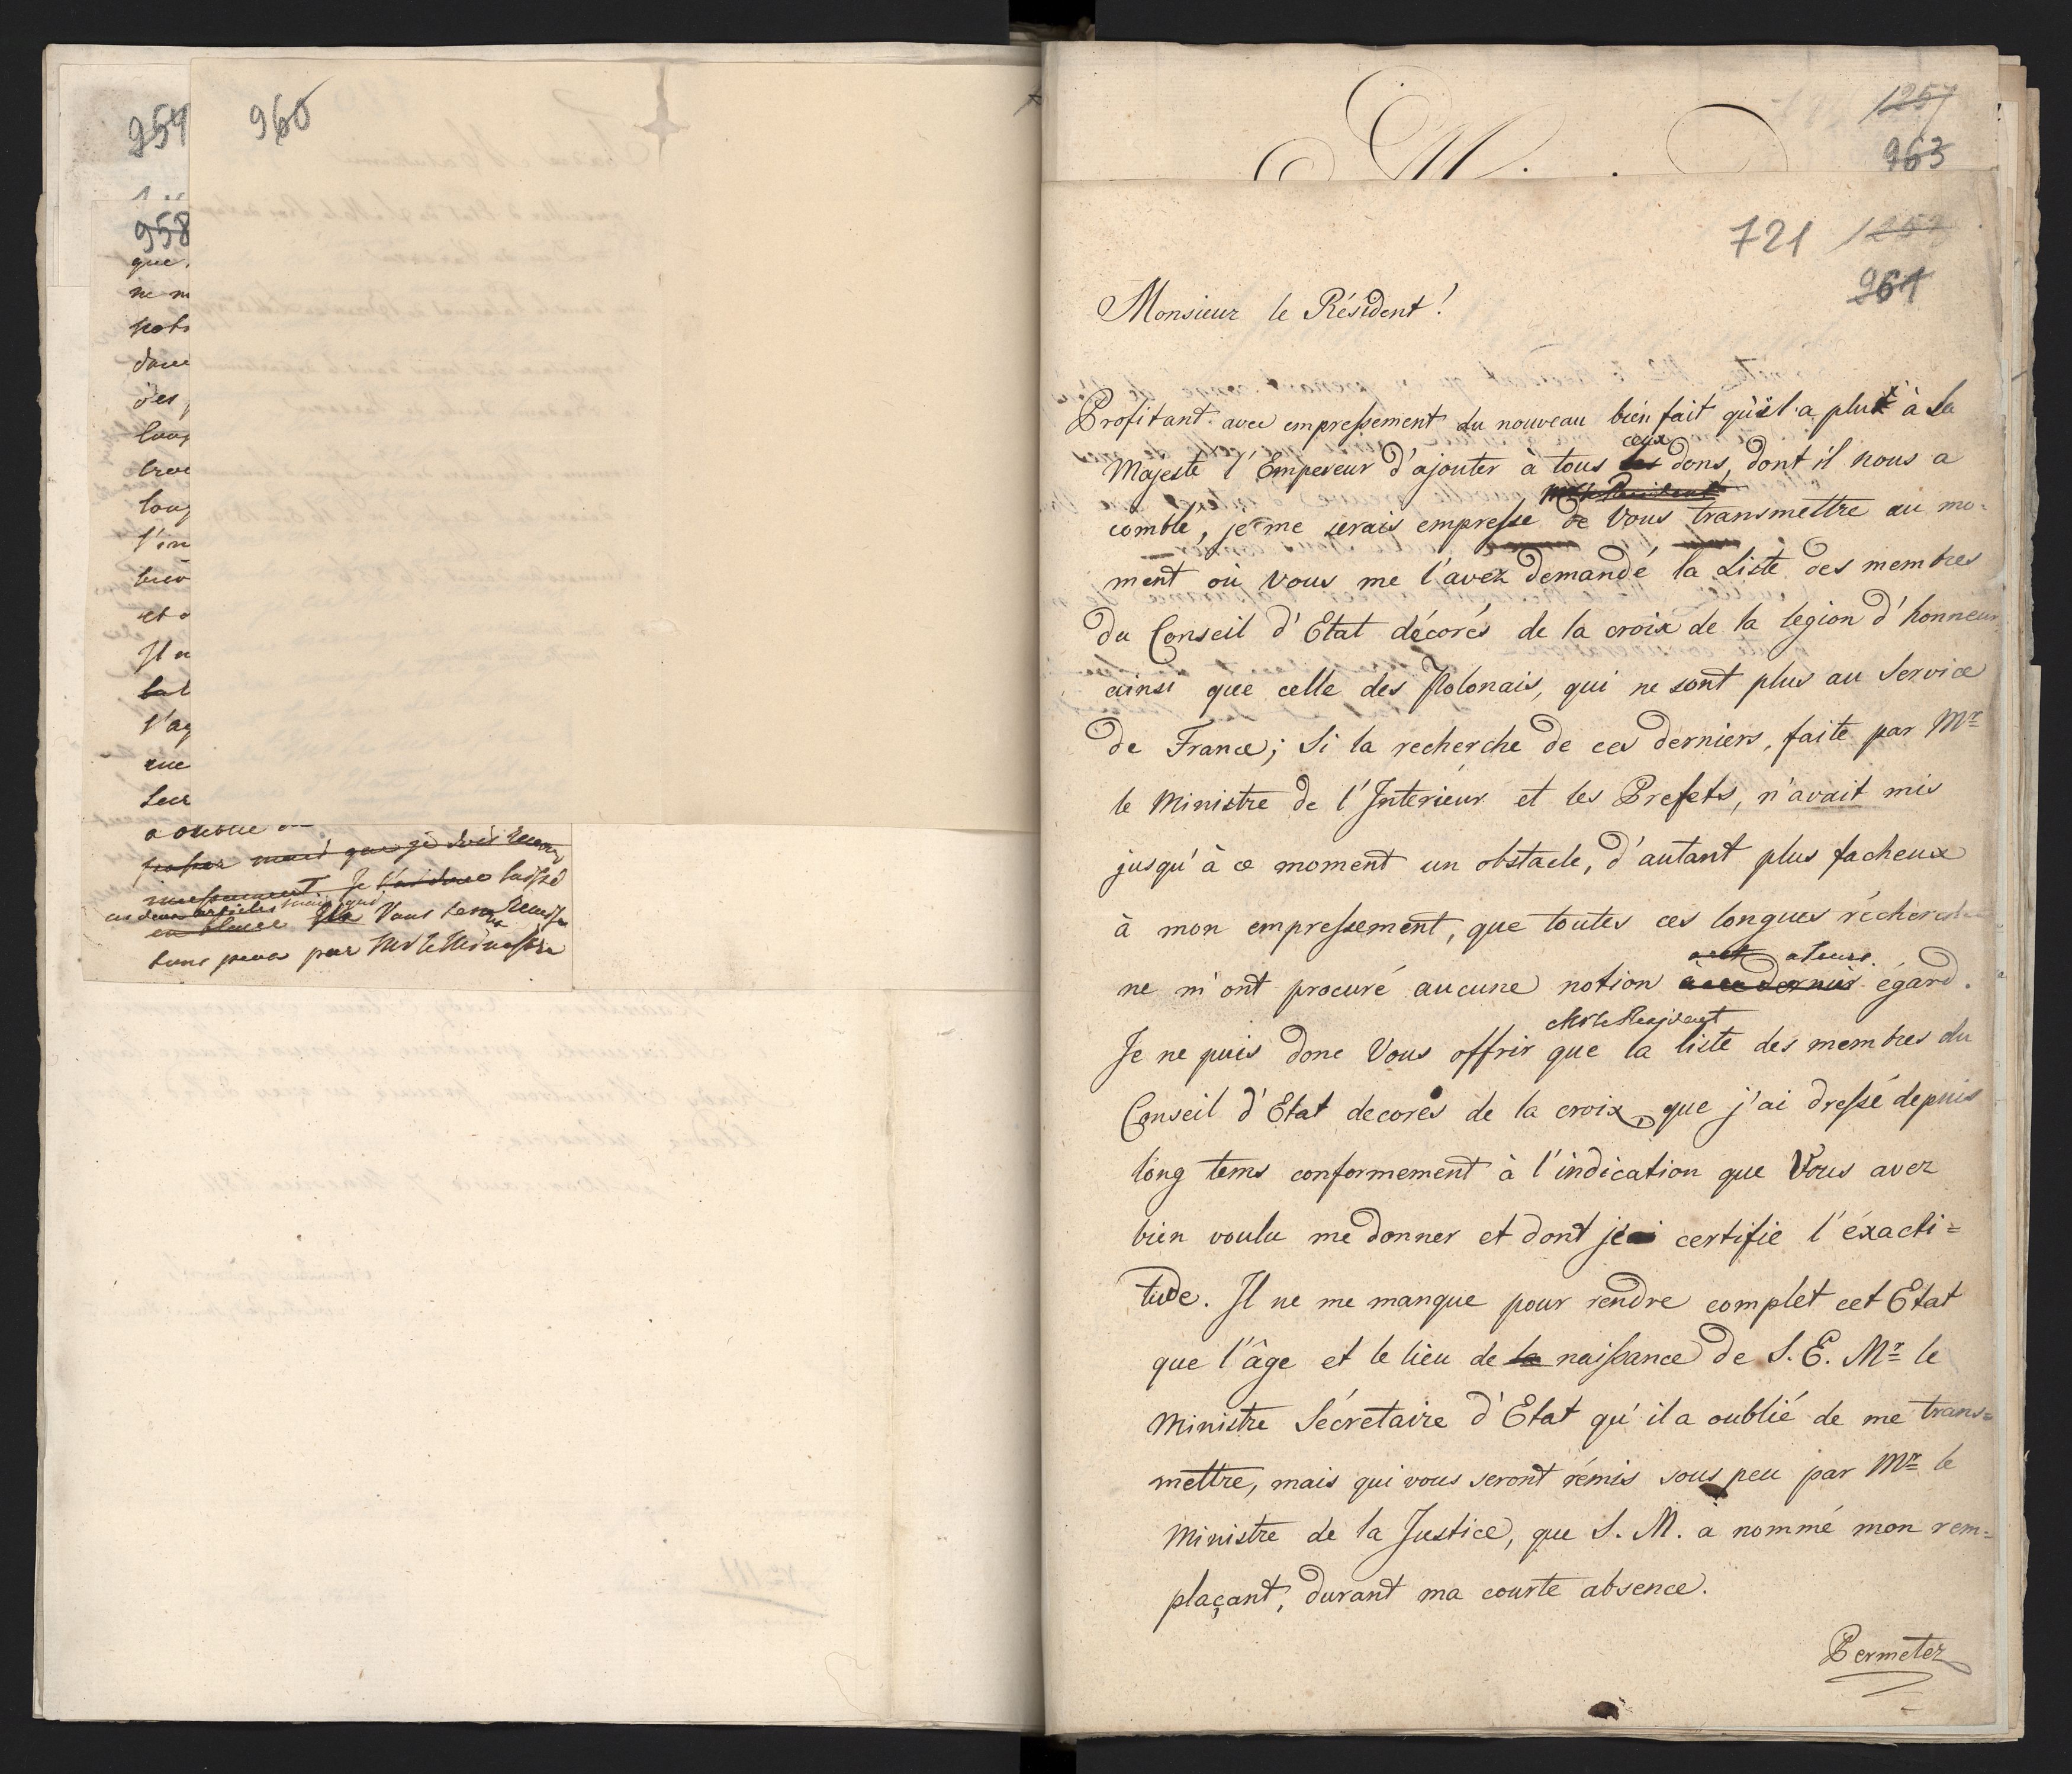 959
960
958
que
ne m
dans
des
l'in
bien
et
Il
l'a
que
passer mais que je dois
Je laissé
ces deux articles mais qui
en blanc Vous
sous peu par Mr le Ministre
1257
963
M.
721 1258
961
Monsieur le Résident!
Profitant avec empressement du nouveau bienfait qu'il a plu à Sa
ceux
Majesté l'Empereur d'ajouter à tous les dons, dont il nous a
Mr le Resident
comblé, je me serais empresse de Vous transmettre au mo-
ment où vous me l'avez demandé la Liste des membres
du Conseil d'Etat décorés de la croix de la legion d'honneur
ainsi que celle des Polonais, qui ne sont plus au Service
de France; Si la recherche de ces derniers, faite par Mr
le Ministre de l'Interieur et les Prefets, n'avait mis
jusqu'à ce moment un obstacle, d'autant plus facheux
à mon empressement, que toutes ces longues récherches
à cet a leurs
ne m'ont procuré aucune notion à ce dernier égard.
Mr le Resident
Je ne puis donc Vous offrir que la liste des membres du
Conseil d'Etat decorés de la croix, que j'ai dressé depuis
long tems conformement à l'indication que Vous avez
bien voulu me donner et dont je certifie l'éxacti=
tude. Il ne me manque pour rendre complet cet Etat
que l'âge et le lieu de la naissance de S. E. Mr le
Ministre Sécretaire d'Etat qu'il a oublié de me trans=
mettre, mais qui vous seront rémis sous peu par Mr le
Ministre de la Justice, que S. M. a nommé mon rem=
plaçant, durant ma courte absence.
Permetez